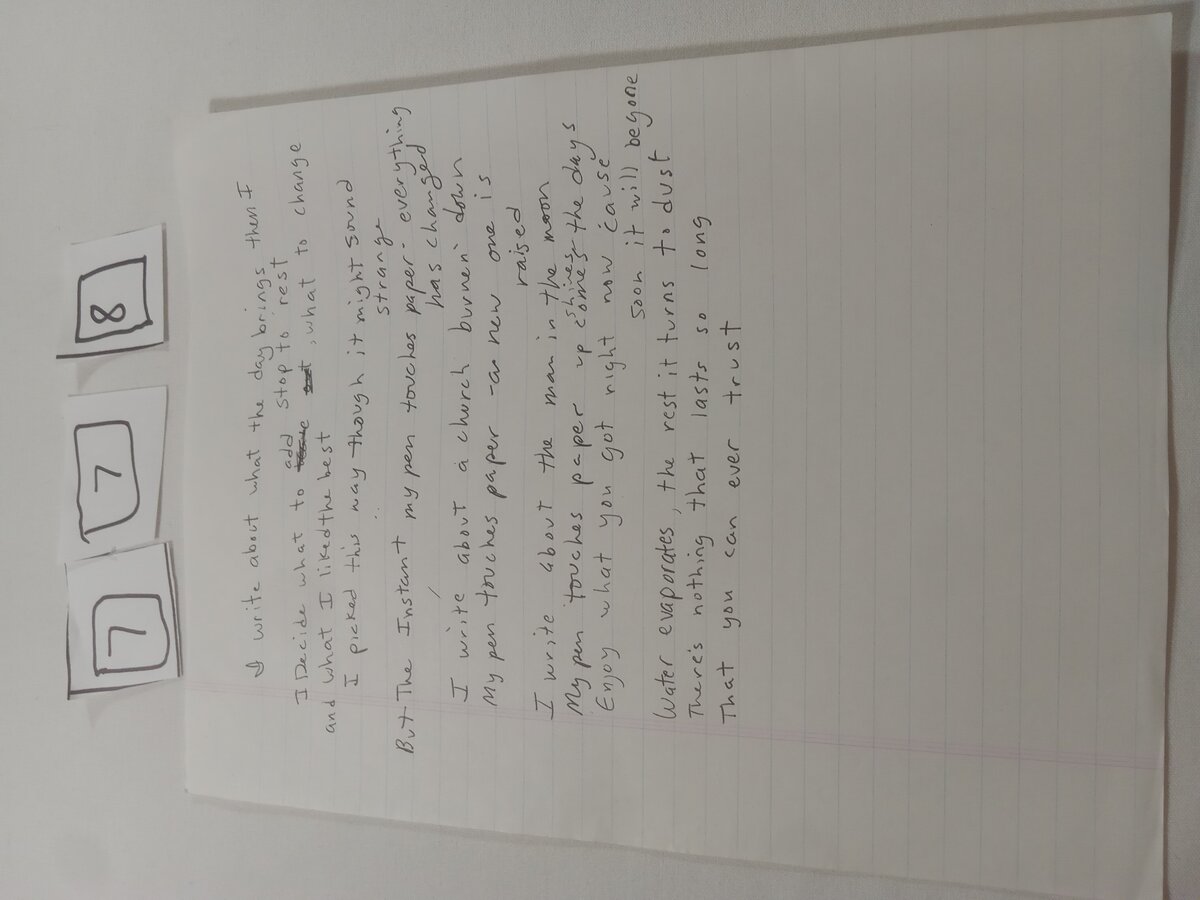 7 7 8
I write about what the day brings then I
stop to rest
I Decide what to add, what to change
and what I liked the best
I picked this way though it might sound
strange
But The Instant my pen touches paper everything
has changed
I write about a church burnen down
My pen touches paper - a new one is
raised
I write about the man in the moon
My pen touches paper up comes the days
shines
Enjoy what you got right now cause
soon it will be gone
Water evaporates, the rest it turns to dust
There's nothing that lasts so long
That you can ever trust